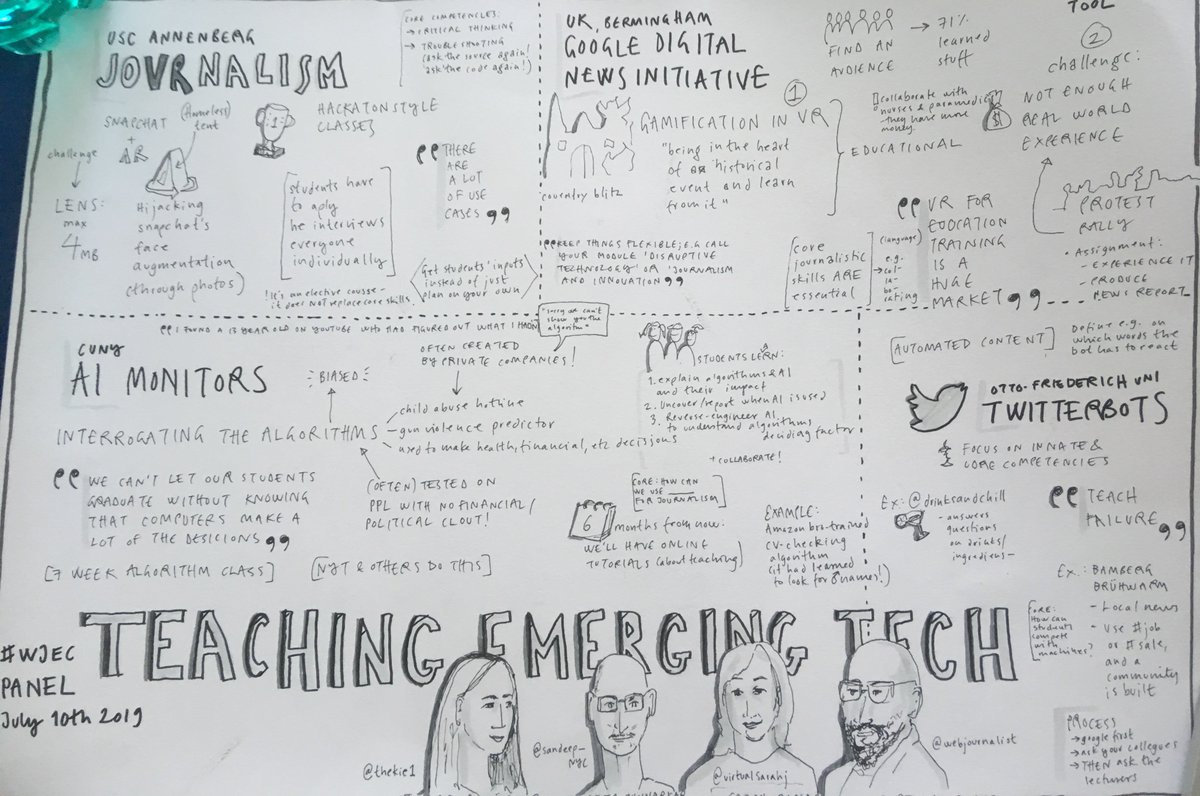 USC ANNENBERG
JOVRNALISM
CORE COMPETENCIES:
→ CRITICAL THINKING
→ TROUBLE SHOOTING
(ask the source again!
ask the code again!)
challenge
LENS:
max
4MB
SNAPCHAT
+
AR
(homeless)
tent
Hijacking
snapchat's
face
augmentation
(through photos)
1
HACKATONSTYLE
CLASSES
students have
to aply
he interviews
everyone
individually
THERE
ARE
A LOT
OF USE
CASES
!It's an elective course-
it does NOT replace core skills
Get students' inputs
instead of just
plan on your own
UK, BERMINGHAM
GOOGLE DIGITAL
NEWS INITIATIVE
coventry blitz
1
GAMIFICATION IN VR
"being in the heart
of historical
event and learn
from it"
EDUCATIONAL
KEEP THINGS FLEXIBLE; E.G CALL
YOUR MODULE 'DISRUPTIVE
TECHNOLOGY' OR 'JOURNALISM
AND INNOVATION
core
journalistic
skills ARE
essential
FIND AN
AUDIENCE
→ 71%
learned
stuff
collaborate with
nurses & paramedics
they have more
money.
$
(language)
e.g.
col-
la-
bo-
rating
VR FOR
EDUCATION
TRAINING
IS A
HUGE
MARKET
TOOL
2
challenge:
NOT ENOUGH
REAL WORLD
EXPERIENCE
PROTEST
RALLY
• Assignment:
- EXPERIENCE IT
- PRODUCE
NEWS REPORT
I FOUND A 13 YEAR OLD ON YOUTUBE WHO HAD FIGURED OUT WHAT I HADN
CUNY
AI MONITORS
BIASED
OFTEN CREATED
BY PRIVATE COMPANIES!
"sorry we can't
show you the
algorithm"
INTERROGATING THE ALGORITHMS
child abuse hotline
gun violence predictor
used to make health, financial, etz decisions
WE CAN'T LET OUR STUDENTS
GRADUATE WITHOUT KNOWING
THAT COMPUTERS MAKE A
LOT OF THE DESICIONS
(OFTEN) TESTED ON
PPL WITH NO FINANCIAL/
POLITICAL CLOUT!
[7 WEEK ALGORITHM CLASS]
[NYT & OTHERS DO THIS]
STUDENTS LERN:
A
1. explain algorithms & AI
and their impact
2. Uncover/report when AI is used
3. Reverse-engineer AI
to understand algorithms
deciding factor
+ COLLABORATE!
FORE: HOW CAN
WE USE ____
FOR JOURNALISM
6
months from now:
WE'LL HAVE ONLINE
TUTORIALS (about teaching)
EXAMPLE:
Amazon bro-trained
cv-checking
algorithm
(it had learned
to look for ♂names!)
[AUTOMATED CONTENT]
Define e.g. on
which words the
bot has to react
OTTO-FRIEDERICH UNI
TWITTERBOTS
FOCUS ON INNATE &
CORE COMPETENCIES
Ex: @drinksandchill
- answers
questions
on drinks/
ingrediens-
TEACH
FAILURE
Ex.: BAMBERG
BRÜHWARM
- Local news
- Use #job
or #sale,
and a
community
is built
FORE:
How can
students
compete
with
machines?
TEACHING EMERGING TECH
#WJEC
PANEL
July 10th 2019
@thekie1
@sandeep_
NYC
@virtualsarahj
@webjournalist
PROCESS
→ google first
→ ask your collegues
→ THEN ask the
lecturers